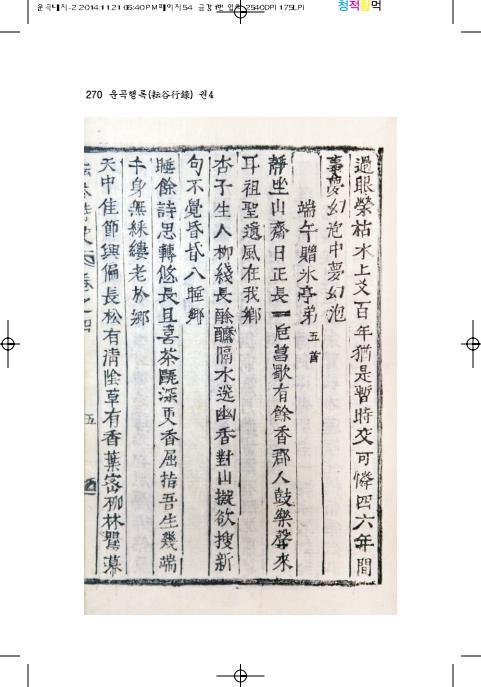 운곡내지-2 2014.11.21 06:40 PM 페이지54
청적황먹
270 운곡행록(耘谷行錄) 권4
過眼榮枯水上交百年猶是暫時交可憐四六年間
事夢幻泡中夢幻泡
端午贈氷亭弟 五首
靜坐山齋日正長一巵菖歜有餘香郡人鼓樂聲來
耳祖聖遺風在我鄕
杏子生人柳綫長餘醺隔水送幽香對山擬欲搜新
句不覺昏昏入睡鄕
睡餘詩思轉悠長且喜茶甌深更香屈指吾生幾端
午身無綵縷老於鄕
天中佳節興偏長松有淸陰草有香葉密柳林翳幕
卷之四
五